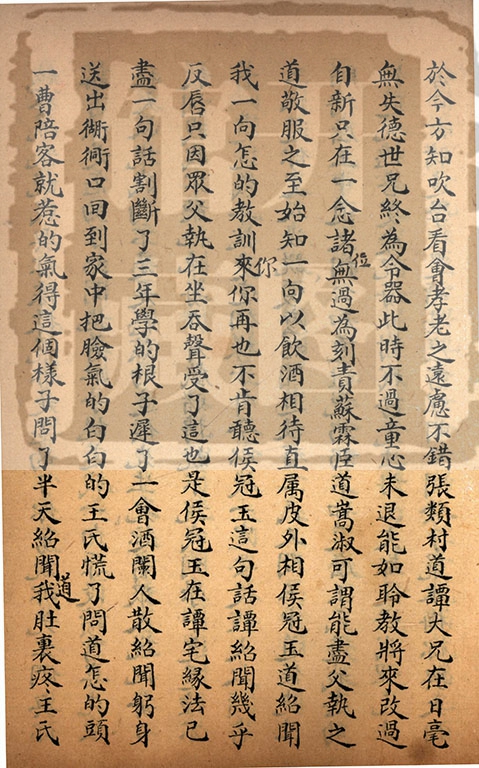 於今方知吹台看會孝老之遠慮不錯張類村道譚大兄在日毫
無失德世兄終為令器此時不過童心未退能如聆教將來改過
自新只在一念諸位無過為刻責蘇霖臣道嵩淑可謂能盡父執之
道敬服之至始知一向以飲酒相待直属皮外相侯冠玉道紹聞
我一向怎的教訓你來你再也不肯聽侯冠玉這句話譚紹聞幾乎
反唇只因眾父執在坐吞聲受了這也是侯冠玉在譚宅緣法已
盡一句話割斷了三年學的根子遲了一會酒闌人散紹聞躬身
送出衚衕口回到家中把臉氣的白白的王氏慌了問道怎的頭
一曹陪客就惹的氣得這個樣子問了半天紹聞道我肚裏疼王氏